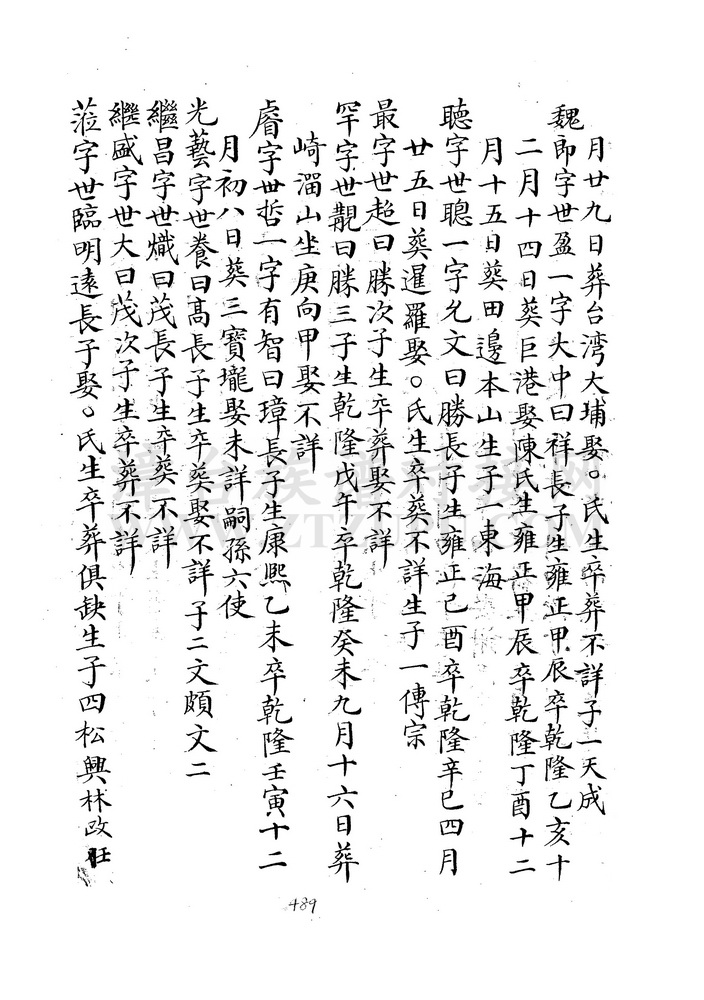 月廿九日葬台湾大埔娶。氏生卒葬不詳子一天成
魏即字世盈一字大中曰祥長子生雍正甲辰卒乾隆乙亥十
二月十四日葬巨港娶陳氏生雍正甲辰卒乾隆丁酉十二
月十五日葬田邊本山生子一東海
聽字世聰一字允文曰勝長子生雍正己酉卒乾隆辛巳四月
廿五日葬暹羅娶。氏生卒葬不詳生子一傳宗
最字世超曰勝次子生卒葬娶不詳
罕字世覯曰勝三子生乾隆戊午卒乾隆癸未九月十六日葬
崎溜山坐庚向甲娶不詳
睿字世哲一字有智曰璋長子生康熙乙未卒乾隆壬寅十二
月初八日葬三寶壠娶未詳嗣孫六使
光藝字世養曰高長子生卒葬娶不詳子二文頗文二
繼昌字世熾曰茂長子生卒葬不詳
繼盛字世大曰茂次子生卒葬不詳
蒞字世臨明遠長子娶。氏生卒葬俱缺生子四松興林政旺
489
漳台族譜對接網
WWW.ZTZUPU.COM